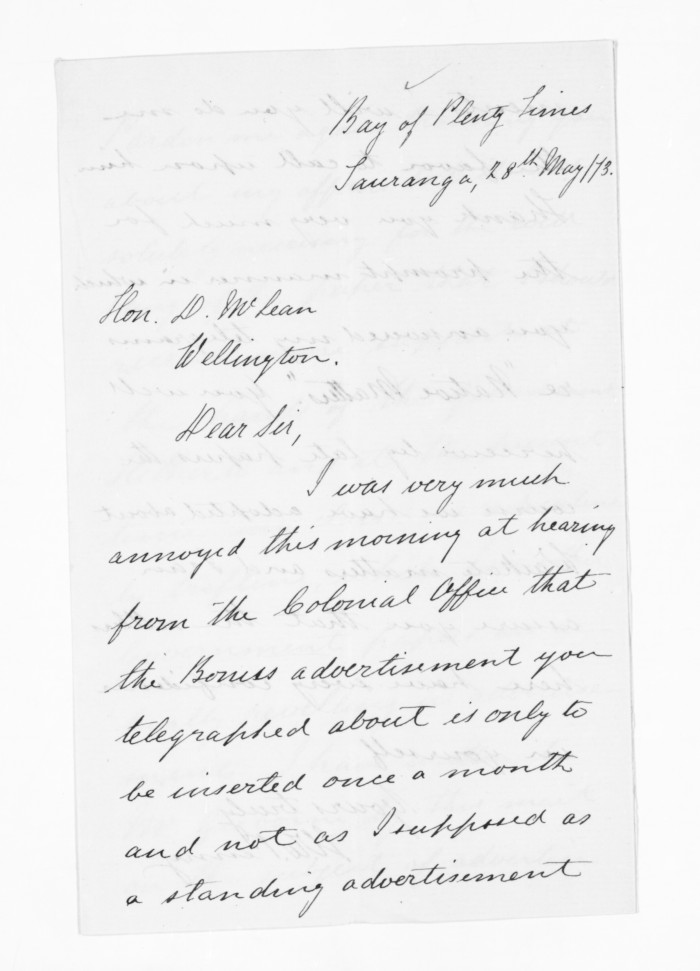 Bay of Plenty Times
Tauranga, 28th May/73.
Hon. D. McLean
Wellington.
Dear Sir,
I was very much
annoyed this morning at hearing
from the Colonial Office that
the Bonus advertisement you
telegraphed about is only to
be inserted once a month
and not as I supposed as
a standing advertisement